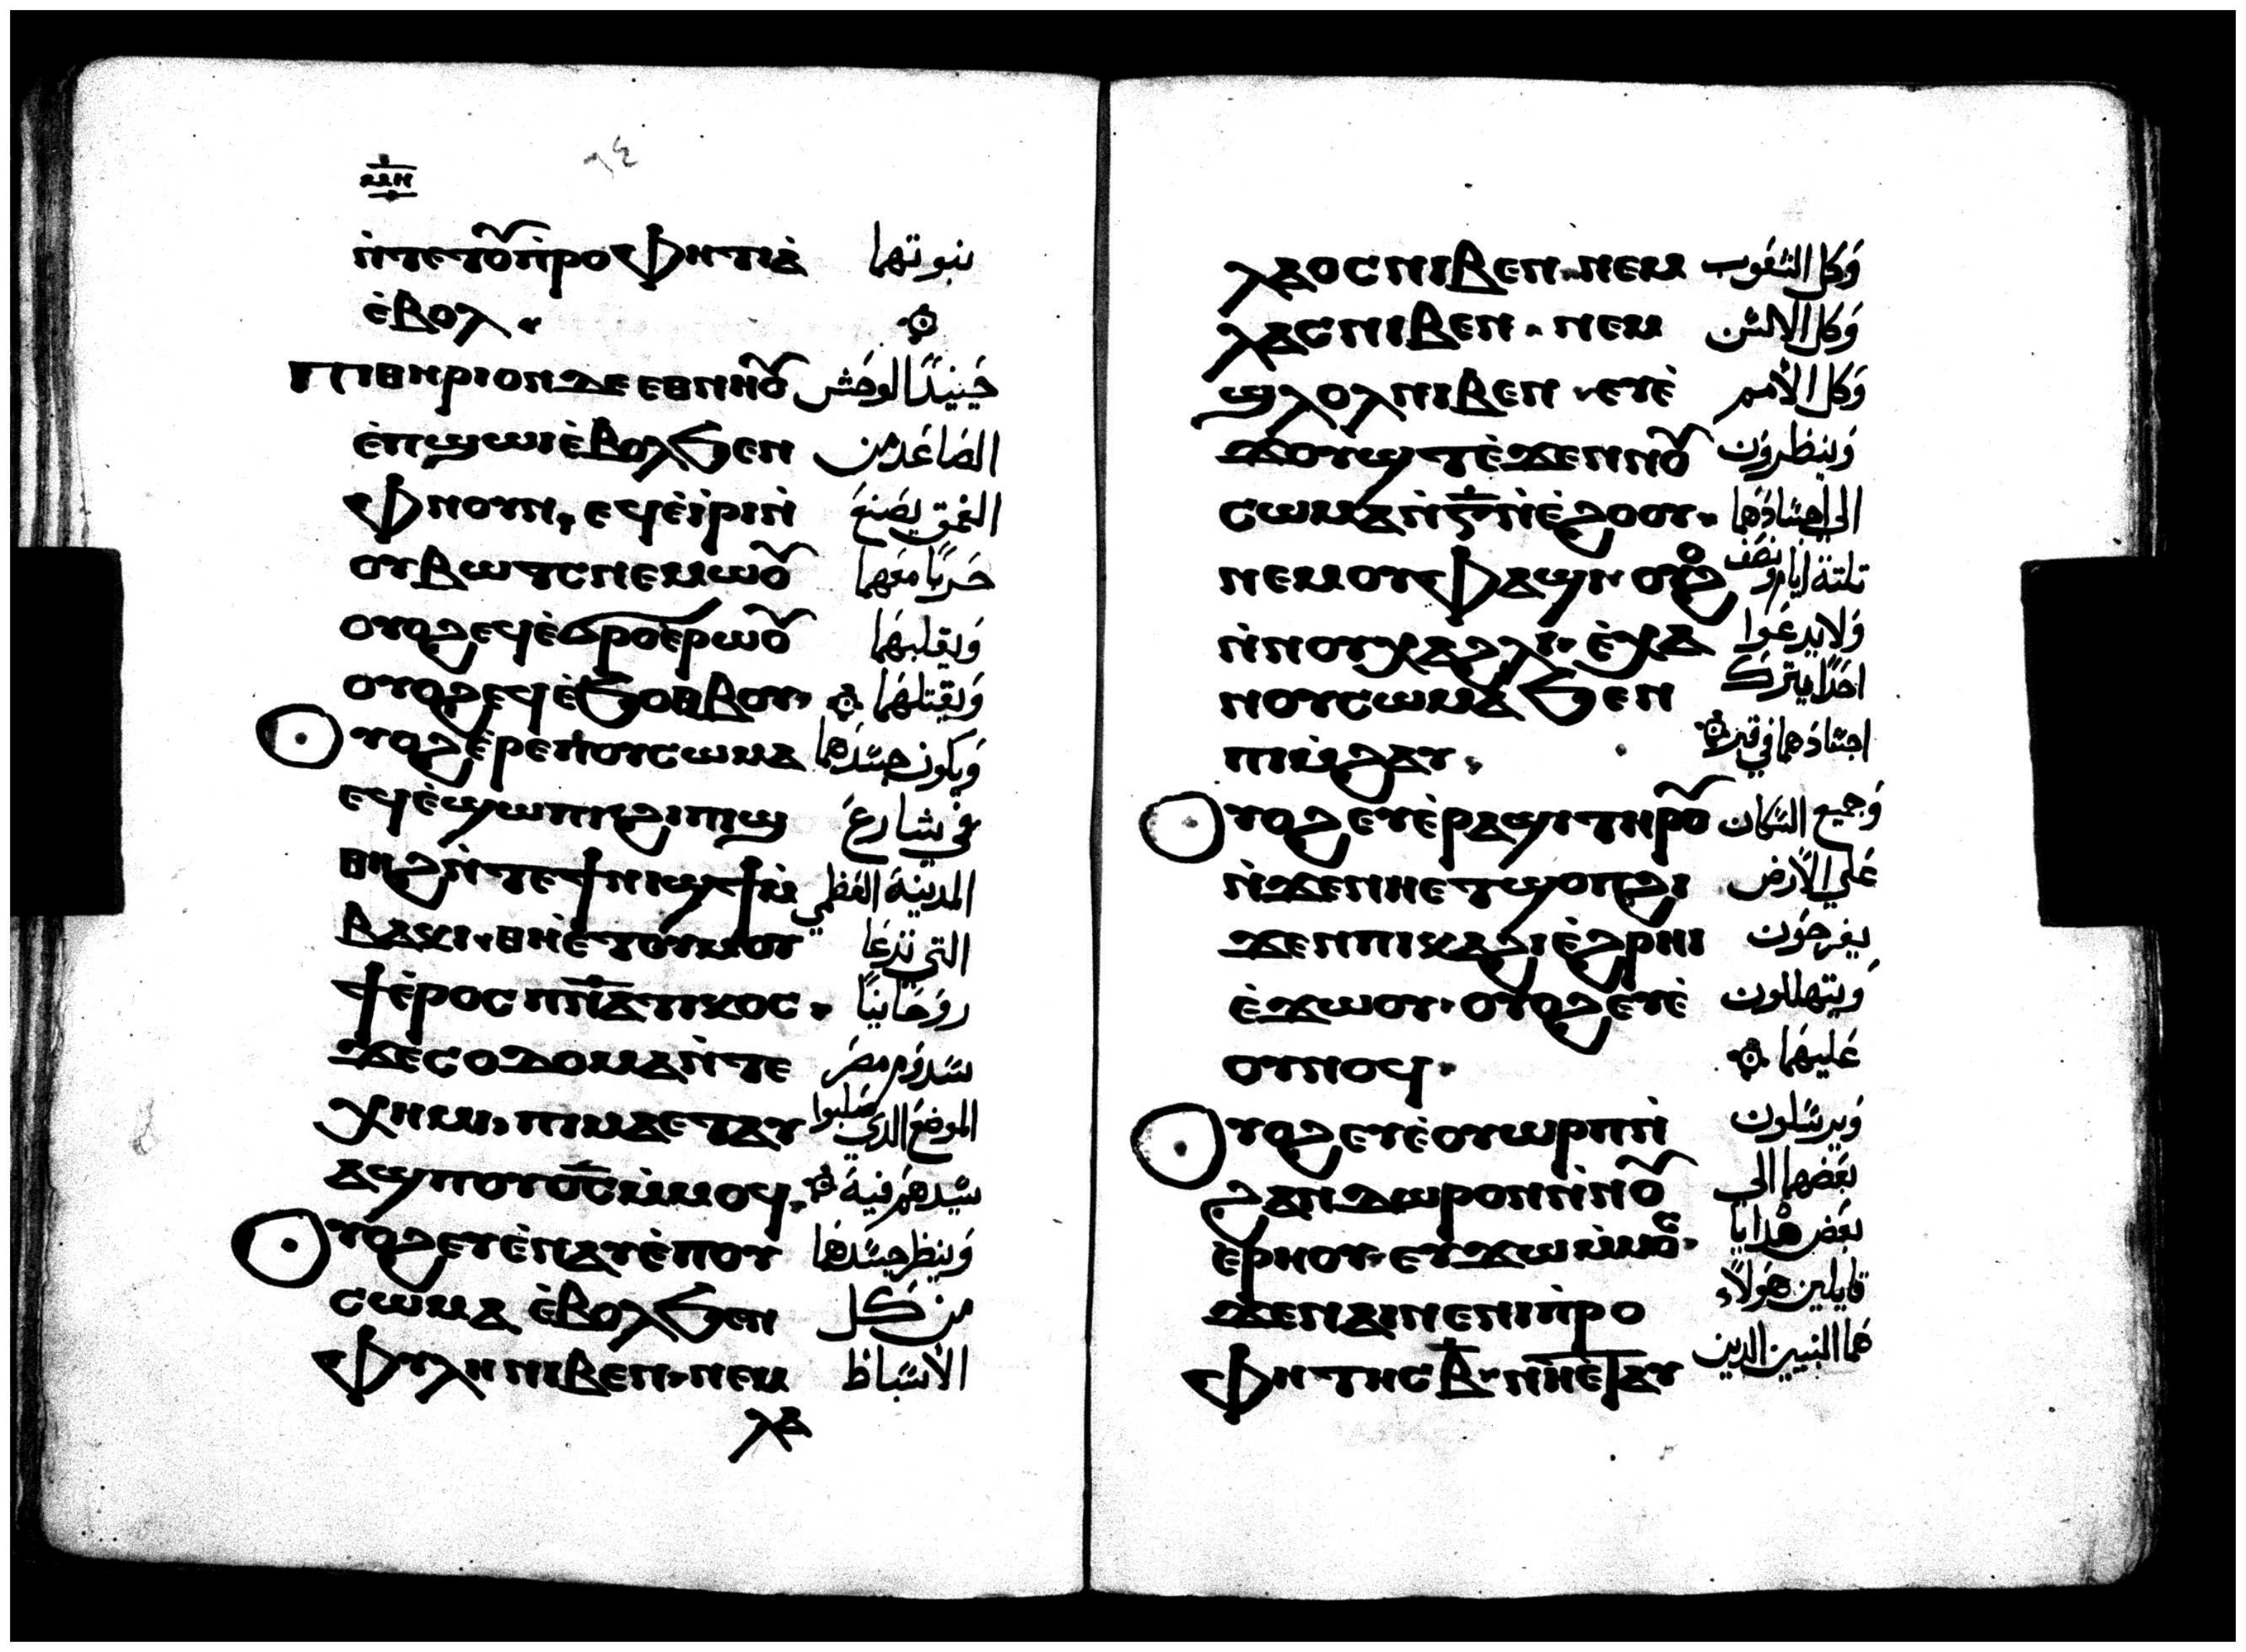 ⲙⲏ
٦٤
ⲛ̀ⲧⲉⲧⲟⲩ̃ⲡ̀ⲣⲟⲫⲏⲧⲓⲁ̀ نبوتهما
ⲉ̀ⲃⲟⲗ
ⲡⲓⲑⲏⲣⲓⲟⲛ ⲇⲉ ⲉⲑⲛⲏⲟⲩ̃ حَينيذًا الوحَش
ⲉ̀ⲡϣⲱⲓ ⲉ̀ⲃⲟⲗϧⲉⲛ الصَاعَد من
ⲫⲛⲟⲩⲛ, ⲉϥⲉ̀ⲓ̀ⲣⲓ ⲛ̀ العمق يصَنعَ
ⲟⲩⲃⲱⲧⲥ ⲛⲉⲙⲱⲟⲩ̃ حَربًا معَهما
ⲟⲩⲟϩ ⲉϥⲉ̀ϭⲣⲟ ⲉ̀ⲣⲱⲟⲩ̃ وَيقلبهَما
ⲟⲩⲟϩ ⲉϥⲉ̀ϧⲟⲑⲃⲟⲩ وَيقتلهَما
ⲟⲩⲟϩ ⲉ̀ⲣⲉ ⲛⲟⲩⲥⲱⲙⲁ وَيكون جسَدهَما
ⲉϥⲉ̀ϣⲱⲡⲓ ϩⲓ ⲡⲓϣ في شارعَ
ⲑⲏϩ ⲛ̀ⲧⲉ ϯⲛⲓϣϯ ⲙ̀ المدينة العَظمي
ⲃⲁⲕⲓ ⲑⲏ ⲉ̀ⲧⲟⲩⲙⲟⲩ التي تدعَا
ϯ ⲉ̀ⲣⲟⲥ ⲡⲛ̅ⲁ̅ⲧⲓⲕⲟⲥ روَحَانيًا
ϫⲉ ⲥⲟⲇⲟⲙⲁ ⲛ̀ⲧⲉ سَدوَم مصَر
ⲭⲏⲙⲓ, ⲡⲓⲙⲁ ⲉⲧⲁⲩ الموضعَ الدي صَلبوا
ⲁϣ ⲡⲟⲩⲟ̅ⲥ̅ ⲙ̀ⲙⲟϥ سَيدهَم فيهَ
ⲟⲩⲟϩ ⲉⲩⲉ̀ⲛⲁⲩ ⲉ̀ⲛⲟⲩ وَينظر جسَدهَما
ⲥⲱⲙⲁ ⲉ̀ⲃⲟⲗϧⲉⲛ من كل
ⲫⲩⲗⲏ ⲛⲓⲃⲉⲛ, ⲛⲉⲙ الاسَباط
ⲗⲁ
ⲗⲁⲟⲥ ⲛⲓⲃⲉⲛ ⲛⲉⲙ وَكل الشعَوب
ⲗⲁⲥ ⲛⲓⲃⲉⲛ ⲛⲉⲙ وَكل الالسَن
ϣⲗⲟⲗ ⲛⲓⲃⲉⲛ ⲉⲩⲉ̀ وَكل الأمم
ϫⲟⲩϣⲧ ⲉ̀ϫⲉⲛ ⲛⲟⲩ̃ وَينظروَن
ⲥⲱⲙⲁ ⲛ̀ⲅ̅ ⲛ̀ⲉ̀ϩⲟⲟⲩ الي اجسَادهَما
ⲛⲉⲙ ⲟⲩⲫⲁϣⲓ ⲟⲩⲟϩ تلتة ايام ونصَف
ⲛ̀ⲛⲟⲩⲭⲁ ϩⲗⲓ ⲉ̀ⲭⲁ وَلا يدعَوا
ⲛⲟⲩⲥⲱⲙⲁ ϧⲉⲛ احَدًا يترك
ⲡⲓⲙ̀ϩⲁⲩ اجسَادهما في قبر
ⲟⲩⲟϩ ⲉⲩⲉ̀ⲣⲁϣⲓ ⲧⲏⲣⲟⲩ̃ وَجميع السَكان
ⲛ̀ϫⲉ ⲛⲏⲉⲧϣⲟⲡ ϩⲓ عَلي الأرض
ϫⲉⲛ ⲡⲓⲕⲁϩⲓ ⲉ̀ϩⲣⲏⲓ يفرحَوَن
ⲉ̀ϫⲱⲟⲩ ⲟⲩⲟϩ ⲉⲩⲉ̀ وَيتهللون
ⲟⲩⲛⲟϥ عَليهَما
ⲟⲩⲟϩ ⲉⲩⲉ̀ⲟⲩⲱⲣⲡ ⲛ̀ وَيرسَلون
ϩⲁⲛⲇⲱⲣⲟⲛ ⲛ̀ⲛⲟⲩ̃ بعَضهما الي
ⲉ̀ⲣⲏⲟⲩ ⲉⲩϫⲱ ⲙ̀ⲙⲟⲥ بعَض هَدايا
ϫⲉ ⲛⲁⲓ ⲛⲉ ⲛⲓⲡ̀ⲣⲟ قايلين هَوَلاء
ⲫⲏⲧⲏⲥ ⲃ̅ ⲛⲏⲉ̀ⲧⲁⲩ هَما النبيين الدين